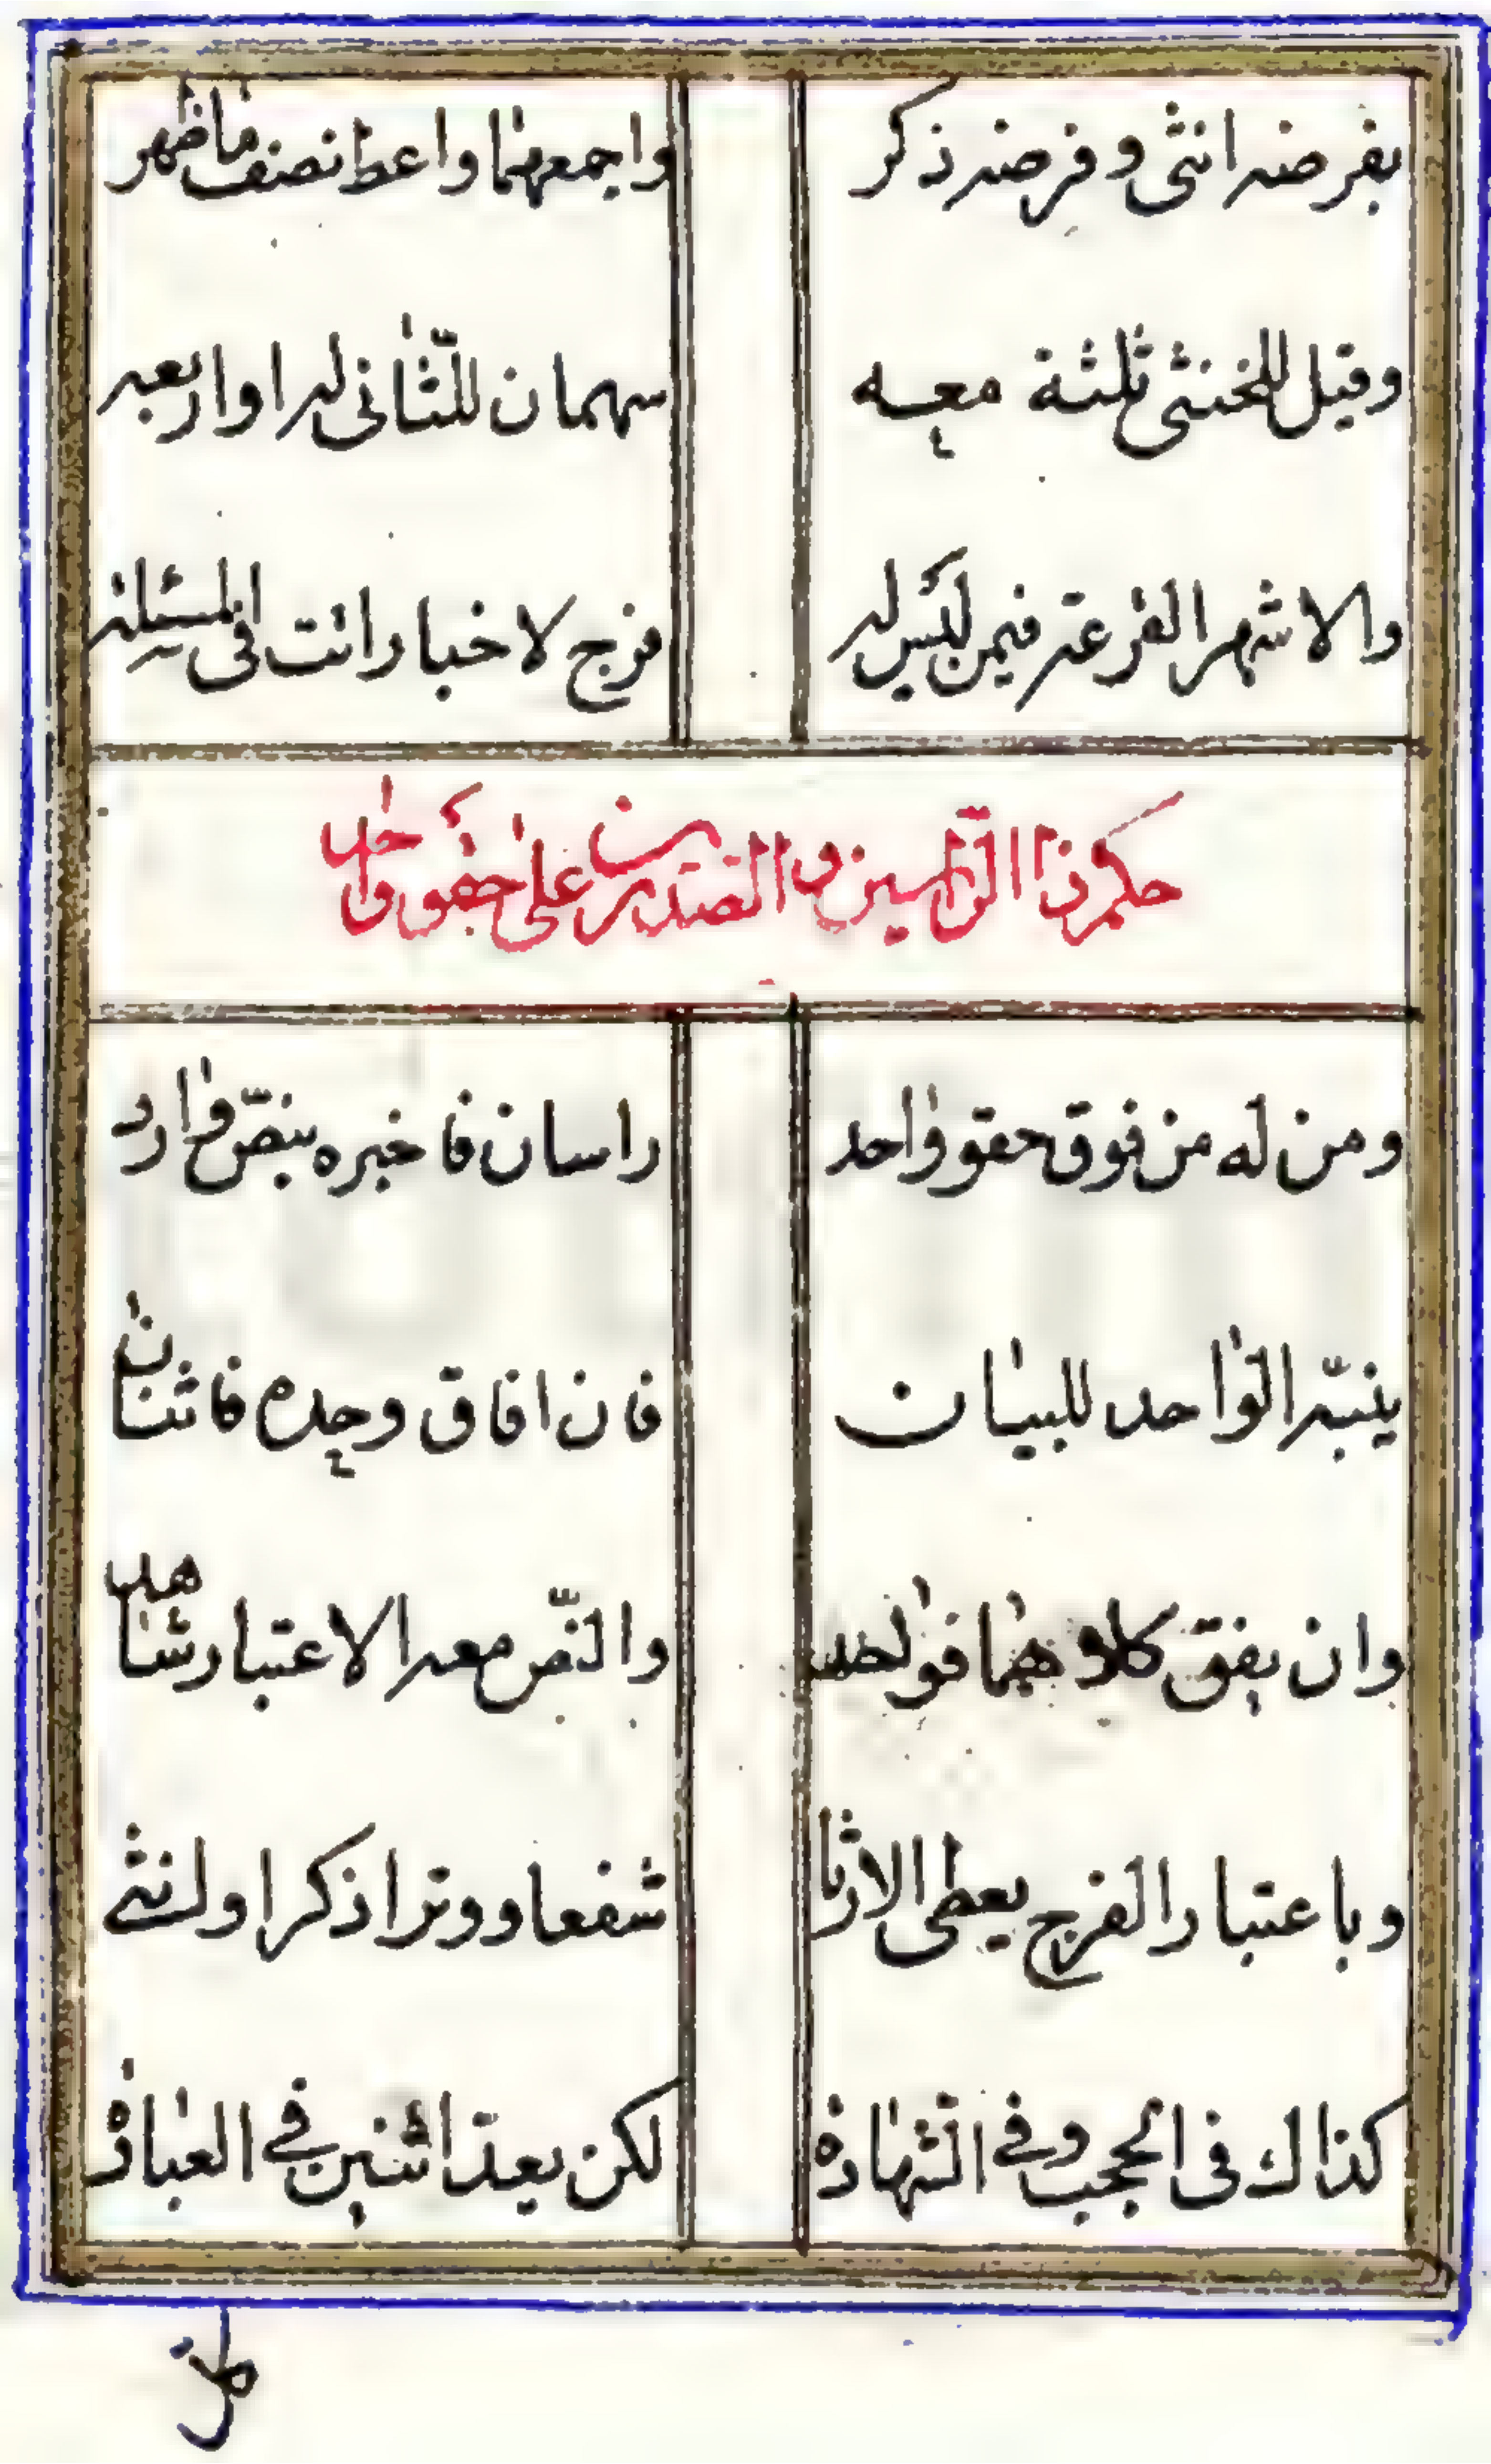 بفرضه انثى وفرضه ذكر واجمعهما واعط نصف ما ظهر
وقيل للخنثى ثلثة معه سهمان للثّانى له او اربعه
والاشهر القرعة فيمن ليس له فرج لاخبار اتت فى المسئله
حكم ذا الرّاسين والصّدرين على حقو واحد
ومن له من فوق حقو واحد راسان فاخبره بنصّ وارد
ينبّه الواحد للبيان فان افاق وحده فاثنان
وان يفق كلاهما فواحد والنّص معه الاعتبار شاهد
وباعتبار الفرج يعطى الارثا شفعا ووترا ذكرا او انثى
كذاك فى الحجب وفى الشّهادة لكن يعدّ اثنين فى العبادة